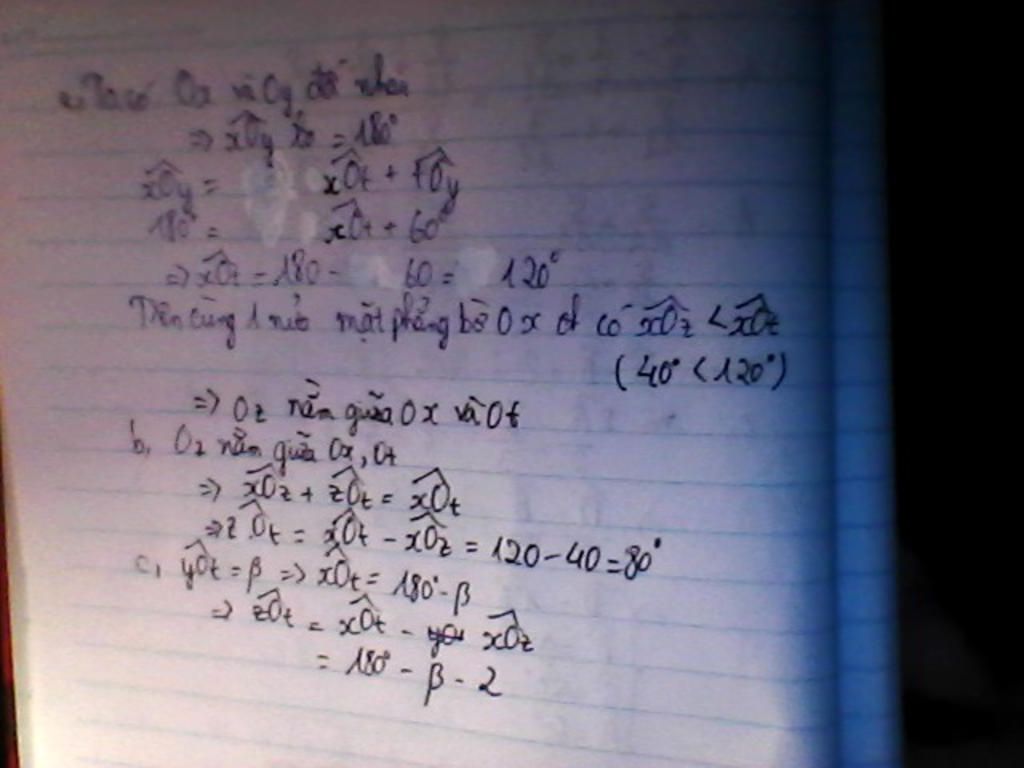 a, Ta có Ox và Oy đối nhau
=> xÔy = 180°
xÔy = xÔt + tÔy
180° = xÔt + 60°
=> xÔt = 180 - 60 = 120°
Trên cùng 1 nửa mặt phẳng bờ Ox có xÔz < xÔt
(40° < 120°)
=> Oz nằm giữa Ox và Ot
b, Oz nằm giữa Ox, Ot
=> xÔz + zÔt = xÔt
=> zÔt = xÔt - xÔz = 120 - 40 = 80°
c, yÔt = β => xÔt = 180° - β
=> zÔt = xÔt - xÔz
= 180° - β - 2